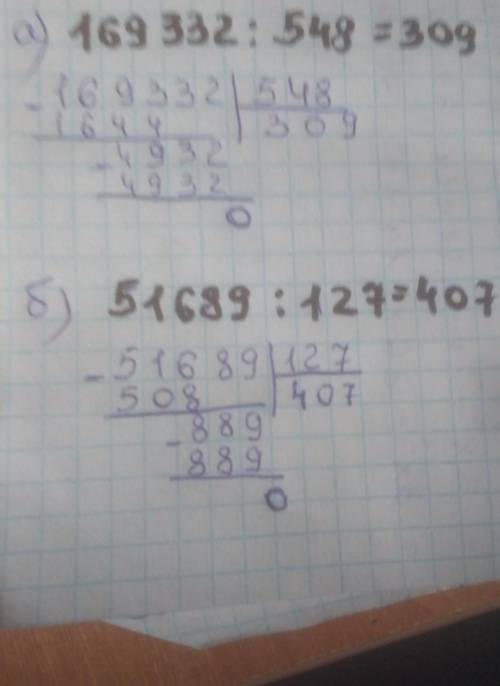 а) 169 332 : 548 = 309
- 169332 | 548
1644 309
- 4932
4932
0
б) 51689 : 127 = 407
- 51689 | 127
508 407
- 889
889
0